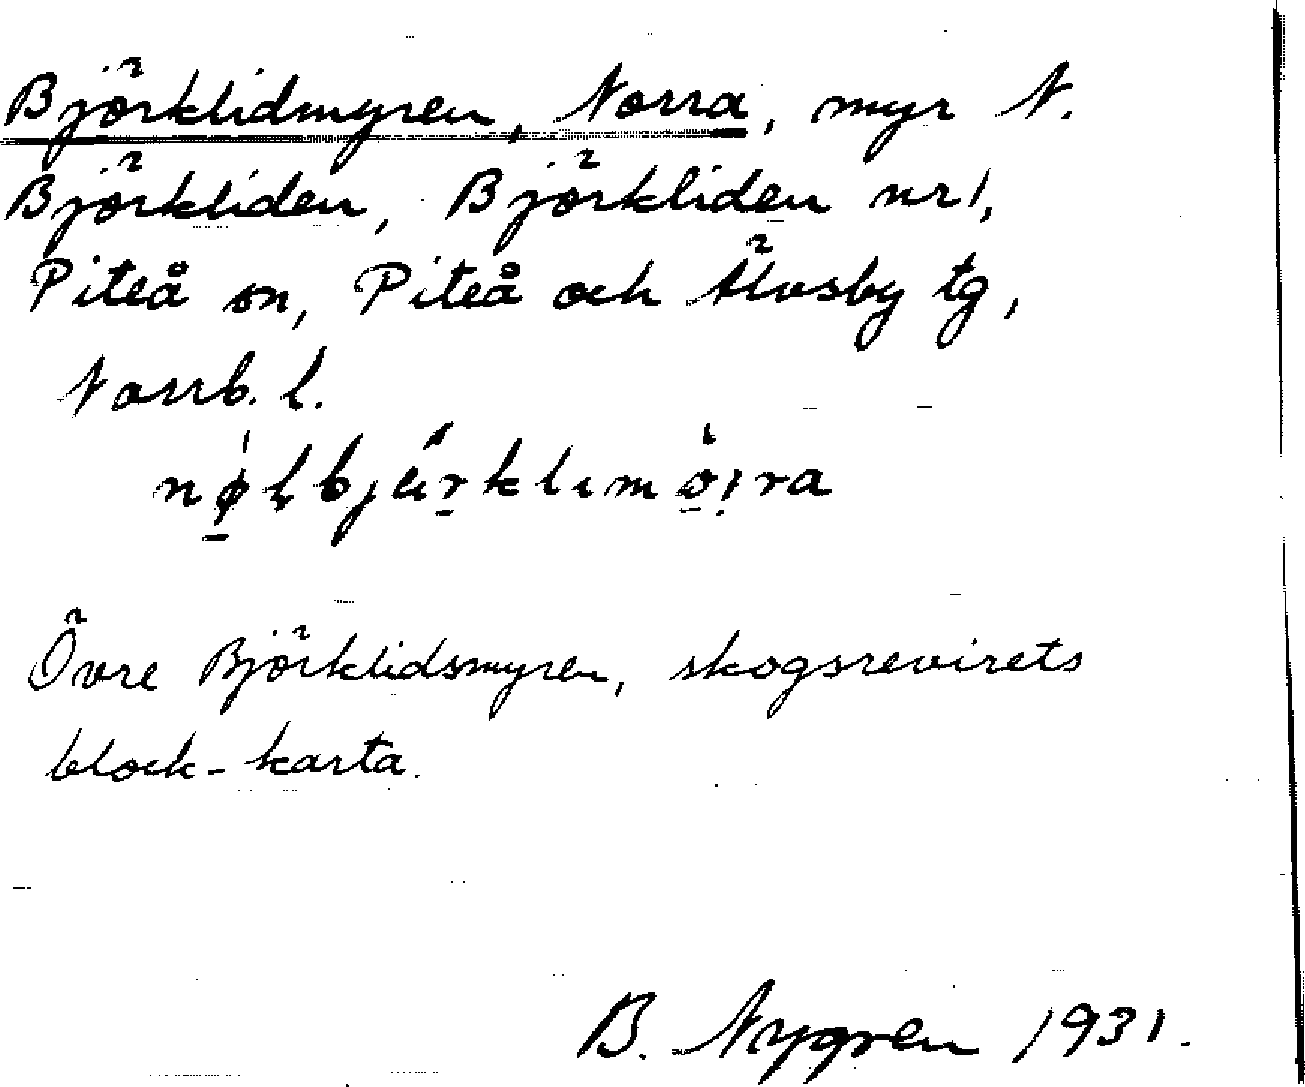 Björklidmyren, Norra, myr N.
Björkliden, Björkliden nr 1,
Piteå sn, Piteå och Älvsby tg,
Norrb. l.
Övre Björklidsmyren, skogsrevirets
block-karta.
B. Nygren 1931.